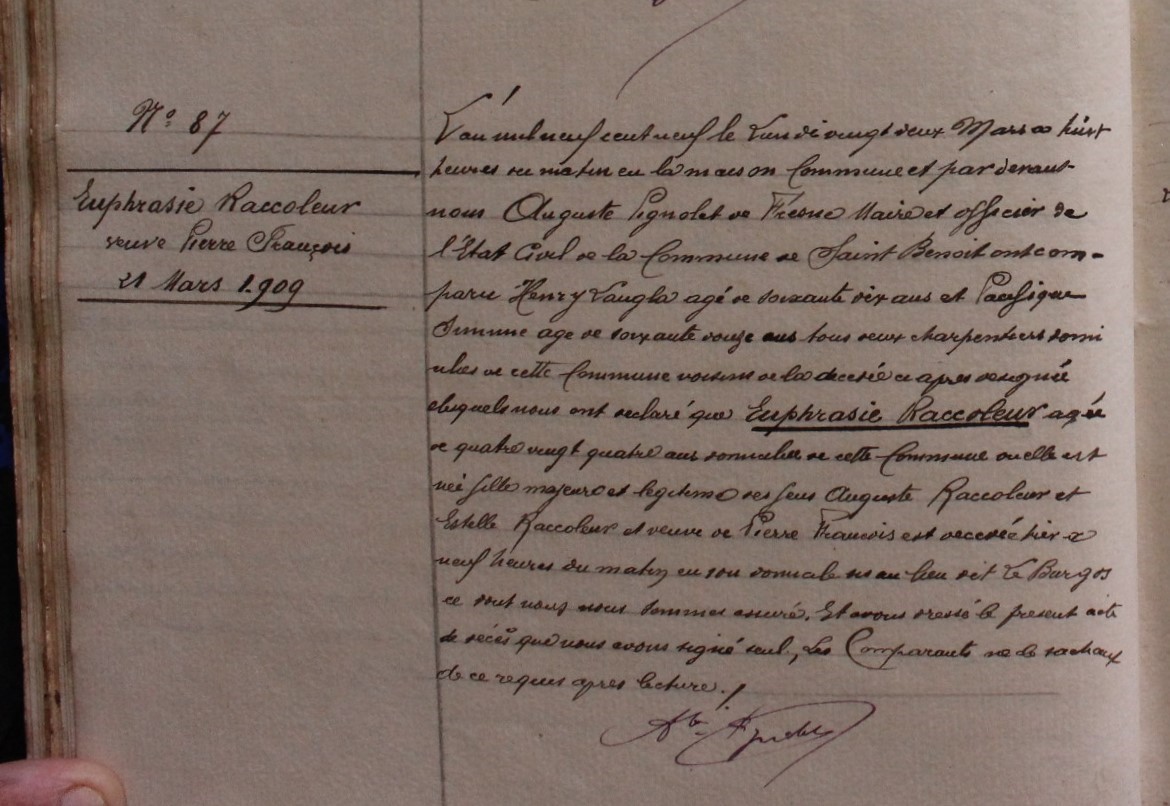 N° 87
Euphrasie Raccoleur
veuve Pierre François
21 Mars 1.909
L'an mil neuf cent neuf le Lundi vingt deux Mars a huit
heures du matin en la maison Commune et par devant
nous Auguste Pignolet de Fresne Maire et officier de
l'Etat Civil de la Commune de Saint Benoit ont com-
paru Henry Laugla agé de soixante dix ans et Pacifique
agé de soixante douze ans tous deux charpentiers domi
ciliés de cette Commune voisins de la decedée ci apres designée
lesquels nous ont declaré que Euphrasie Raccoleur agée
de quatre vingt quatre ans domiciliée de cette Commune ou elle est
née fille majeure et legitime des feus Auguste Raccoleur et
Estelle Raccoleur et veuve de Pierre François est decedée hier a
neuf heures du matin en son domicile sis au lieu dit Le Bourg
ce dont nous nous sommes assuré. Et avons dressé le present acte
de décès que nous avons signé seul, Les Comparants ne le sachant
de ce requis apres lecture./